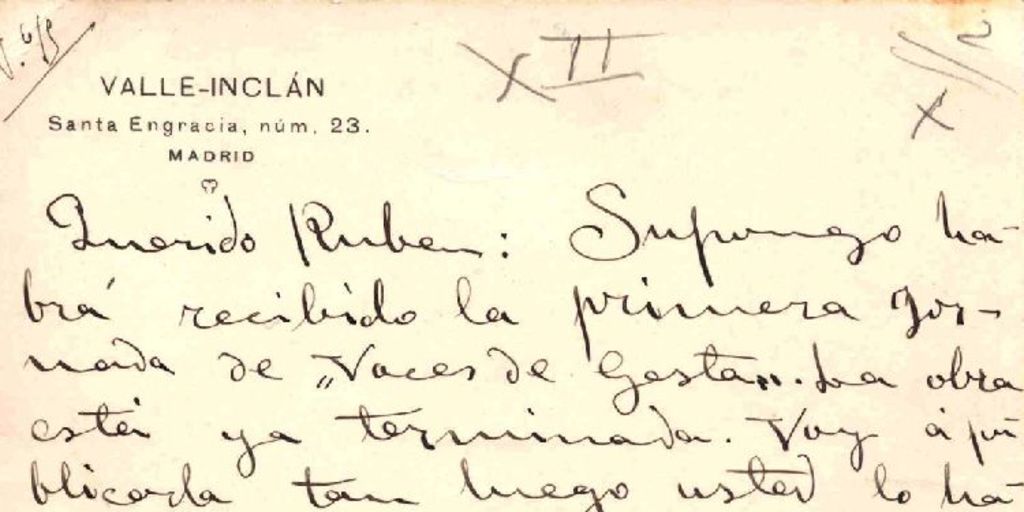 VALLE-INCLÁN
Santa Engracia, núm. 23.
MADRID
XII
X
Querido Ruben: Supongo ha-
brá recibido la primera Jor-
nada de „Voces de Gesta„. La obra
está ya terminada. Voy á pu-
blicarla tan luego usted lo ha-